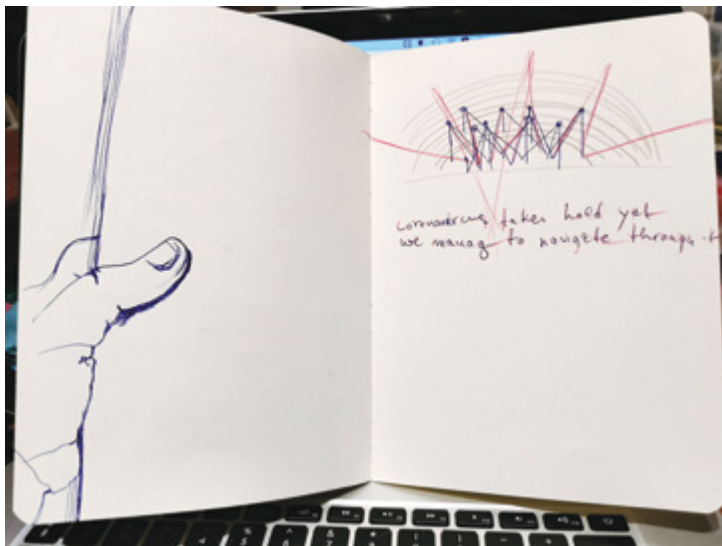 coronavirus taken hold yet
we manag to navigate through it